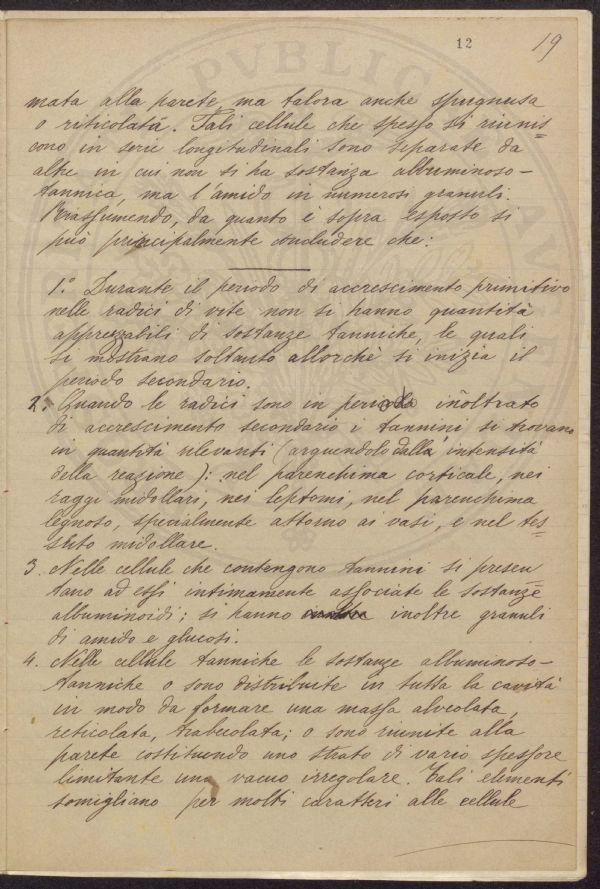 12 19
mata alla parete, ma talora anche spugnusa
o riticolata. Tali cellule che spesso si riunis=
cono in serie longitudinali sono separate da
altre in cui non si ha sostanza albuminoso-
tannica, ma l'amido in numerosi granuli.
Riassumendo, da quanto è sopra esposto si
può principalmente concludere che:
1.° Durante il periodo di accrescimento primitivo
nelle radici di vite non si hanno quantità
apprezzabili di sostanze tanniche, le quali
si mostrano soltanto allorchè si inizia il
periodo secondario.
2. Quando le radici sono in periodo inoltrato
di accrescimento secondario i tannini si trovano
in quantità rilevanti (arguendolo dalla intensità
della reazione): nel parenchima corticale, nei
raggi midollari, nei leptomi, nel parenchima
legnoso, specialmente attorno ai vasi, e nel tes=
suto midollare.
3. Nelle cellule che contengono tannini si presen
tano ad essi intimamente associate le sostanze
albuminoidi; si hanno inoltre granuli
di amido e glucosi.
4. Nelle cellule tanniche le sostanze albuminoso-
tanniche o sono distribuite in tutta la cavità
in modo da formare una massa alveolata,
reticolata, trabecolata; o sono riunite alla
parete costituendo uno strato di vario spessore
limitante una vacuo irregolare. Tali elementi
somigliano per molti caratteri alle cellule
PVBLIC